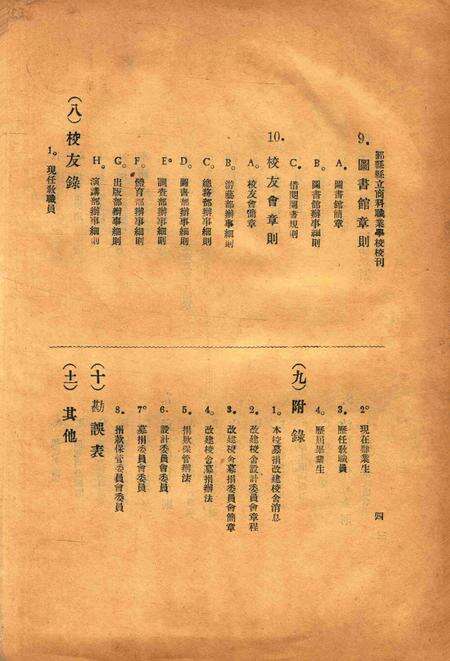 鄞縣縣立商科職業學校校刊
9. 圖書館章則
A. 圖書館簡章
B. 圖書館辦事細則
C. 借閱圖書規則
10. 校友會章則
A. 校友會簡章
B. 游藝部辦事細則
C. 總務部辦事細則
D. 圖書部辦事細則
E. 調查部辦事細則
F. 體育部辦事細則
G. 出版部辦事細則
H. 演講部辦事細則
(八) 校友錄
1. 現任敎職員
2. 現在肄業生
3. 歷任敎職員
4. 歷屆畢業生
(九) 附錄
1. 本校募捐改建校舍消息
2. 改建校舍設計委員會章程
3. 改建校舍募捐委員會簡章
4. 改建校舍募捐辦法
5. 捐款保管辦法
6. 設計委員會委員
7. 募捐委員會委員
8. 捐款保管委員會委員
(十) 勘誤表
(十一) 其他
四